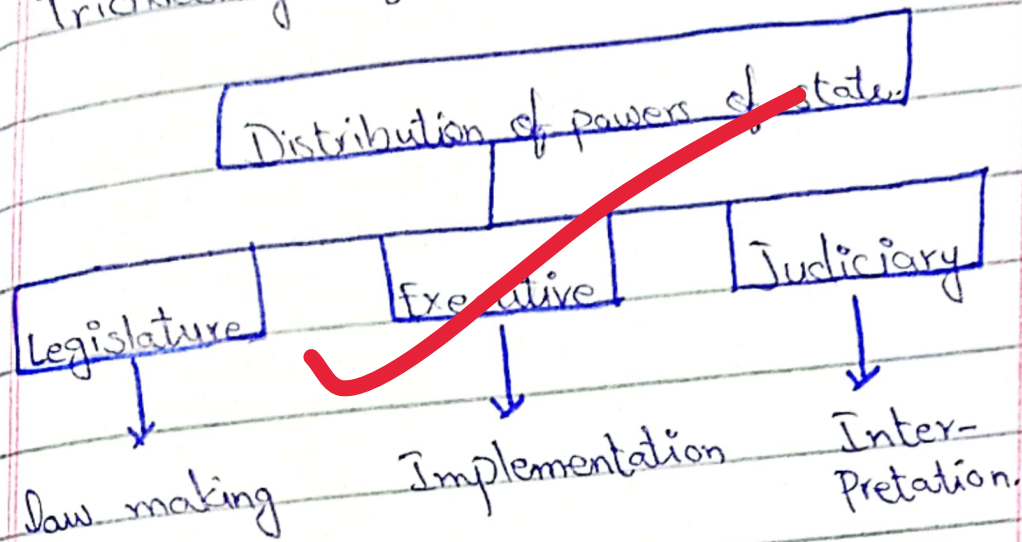 Distribution of powers of state.
Legislature Executive Judiciary
Law making Implementation Inter-
Pretation.